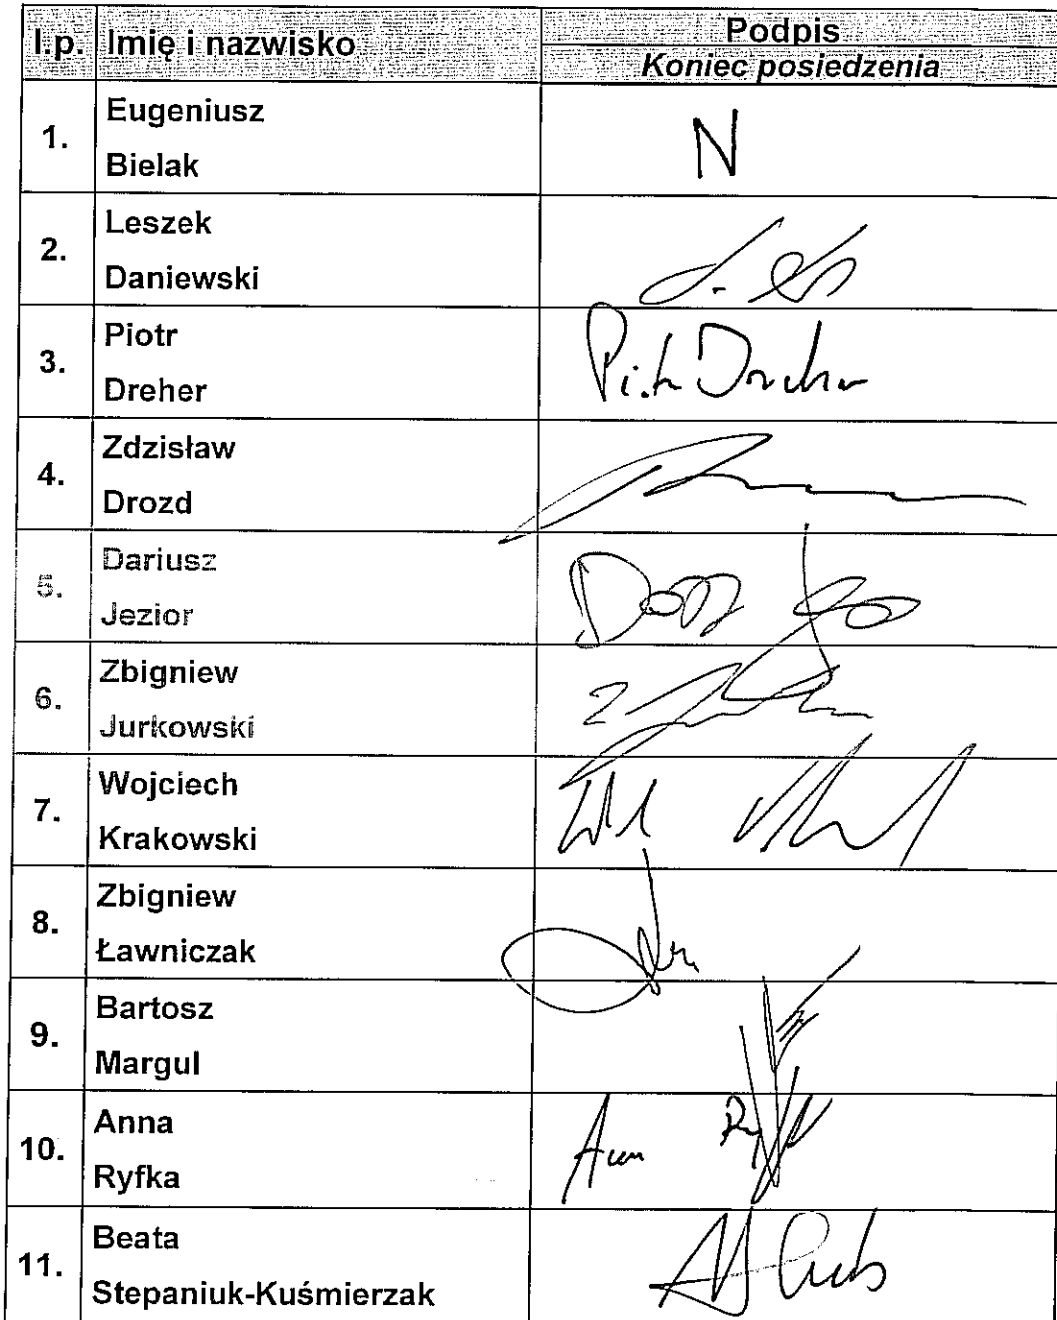 l.p. Imię i nazwisko Podpis
Koniec posiedzenia
1. Eugeniusz
Bielak
N
2. Leszek
Daniewski
3. Piotr
Dreher
Piotr Dreher
4. Zdzisław
Drozd
5. Dariusz
Jezior
6. Zbigniew
Jurkowski
7. Wojciech
Krakowski
8. Zbigniew
Ławniczak
9. Bartosz
Margul
10. Anna
Ryfka
Anna Ryfka
11. Beata
Stepaniuk-Kuśmierzak